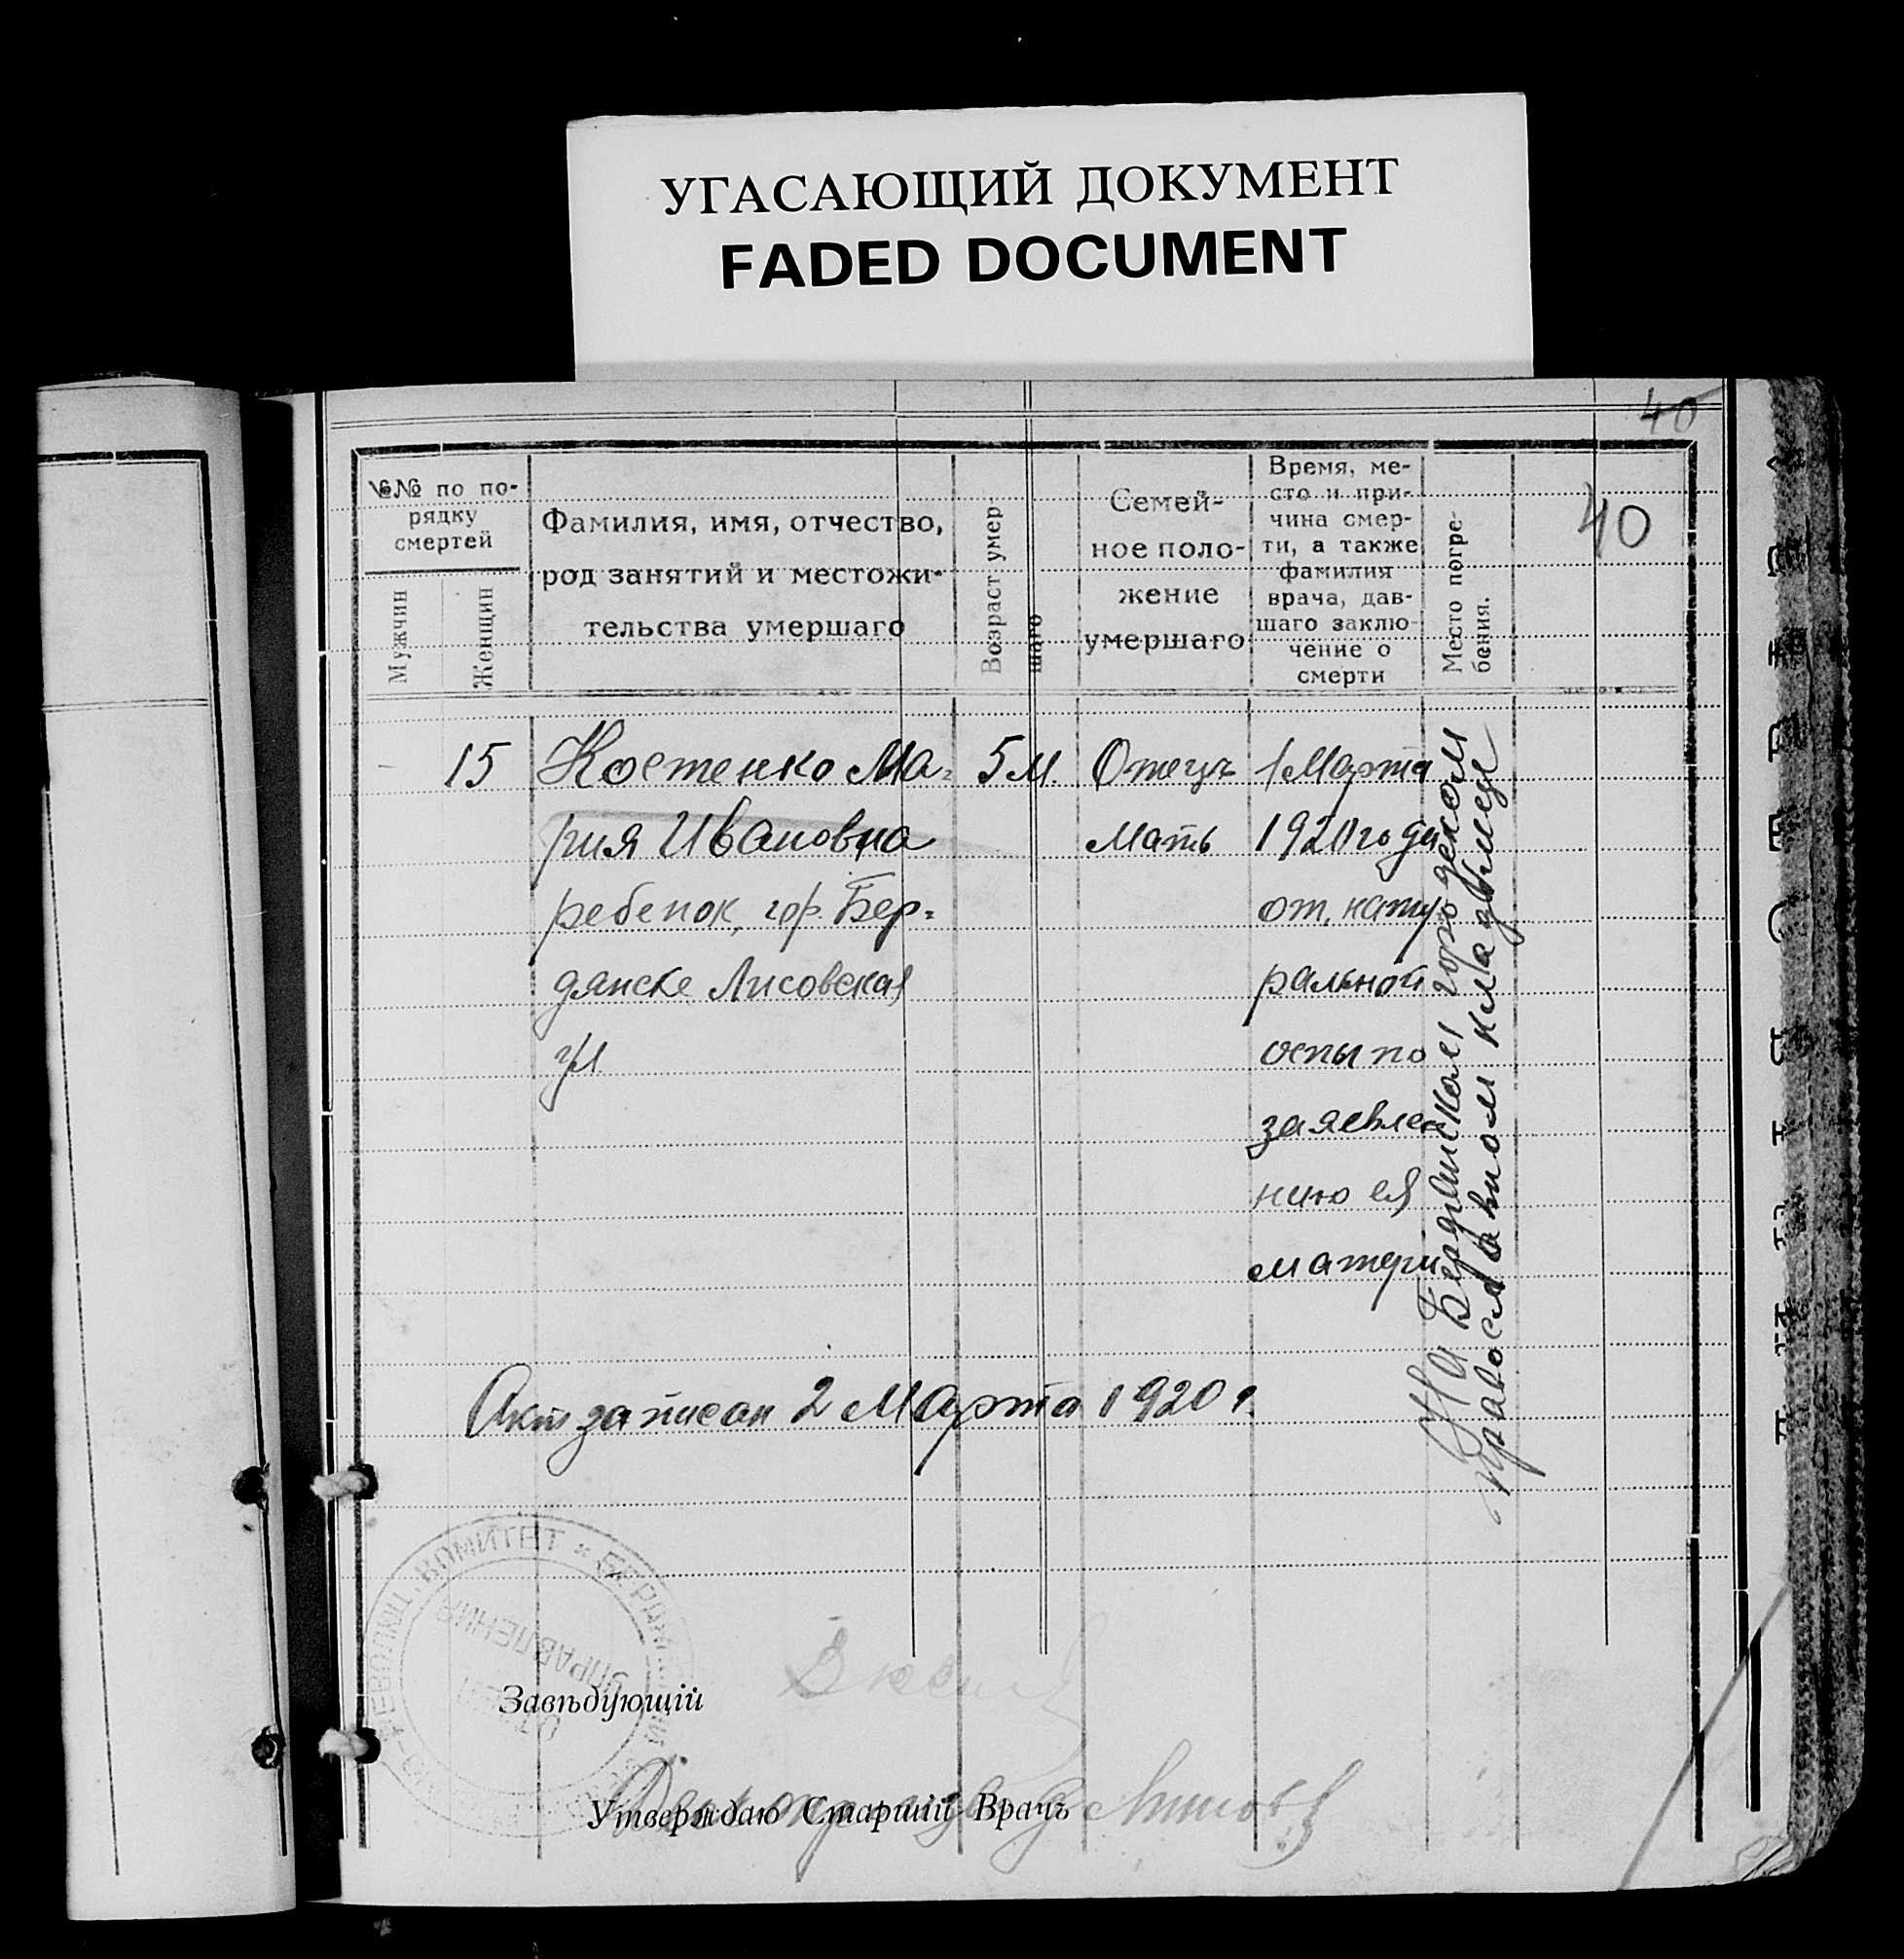 УГАСАЮЩИЙ ДОКУМЕНТ
FADED DOCUMENT
40
40
№№ по по-
рядку
смертей
Мужчин
Женщин
Фамилия, имя, отчество,
род занятий и местожи-
тельства умершаго
Возраст умер-
шаго
Семей-
ное поло-
жение
умершаго
Время, ме-
сто и при-
чина смер-
ти, а также
фамилия
врача, дав-
шаго заклю-
чение о
смерти
Место погре-
бения.
15
Костенко Ма-
рия Ивановна
ребенок, гор. Бер-
дянске Лисовская
ул
5 м.
Отец
Мать
1 Марта
1920 года
от нату
ральной
оспы по
заявле
нию ея
матери
На Бердянском городском
православном кладбище
Акт записан 2 Марта 1920 г.
РЕВОЛЮЦ. КОМИТЕТ * БЕРДЯН
УПРАВЛЕНИЯ
Завѣдующій
Утверждаю Старшій Врачъ